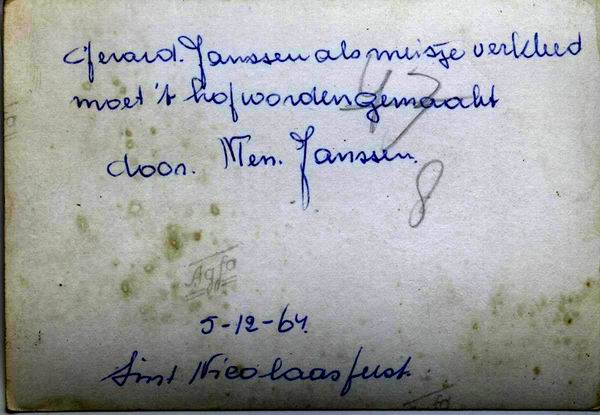 Gerard. Janssen als meisje verkleed
moet 't hof worden gemaakt
47
door. Men. Janssen.
8
Agfa
5-12-64.
Sint Nicolaasfeest.